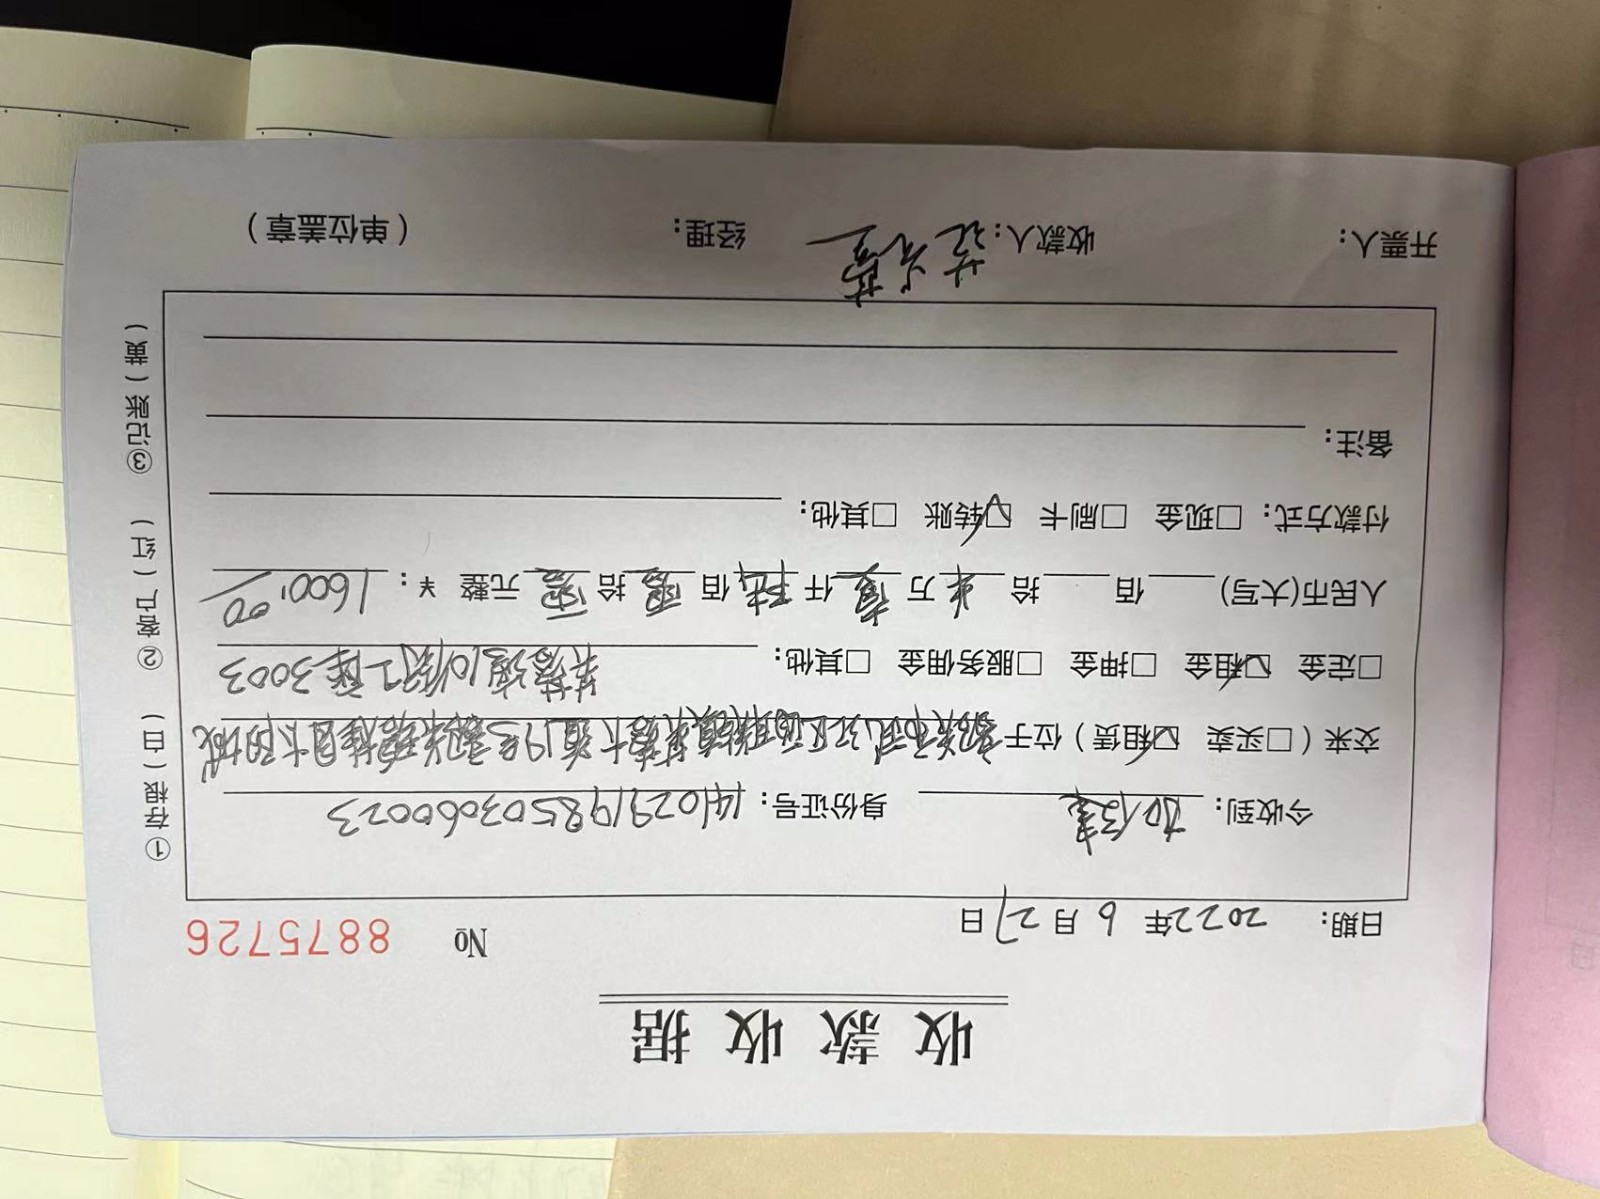 收款收据
日期: 2022年 6月27日 № 8875726
今收到: 身份证号: 141029198503060023
交来（□买卖 ☑租赁）位于 市 区 镇 大道19号 大阳城
□定金 ☑租金 □押金 □服务佣金 □其他: 10街2座3003
人民币(大写) 佰 拾 万 壹仟 陆佰 零拾 零元整 ¥: 1600.00
付款方式: □现金 □刷卡 ☑转账 □其他:
备注:
开票人: 收款人: 经理: （单位盖章）
①存根（白） ②客户（红） ③记账（黄）